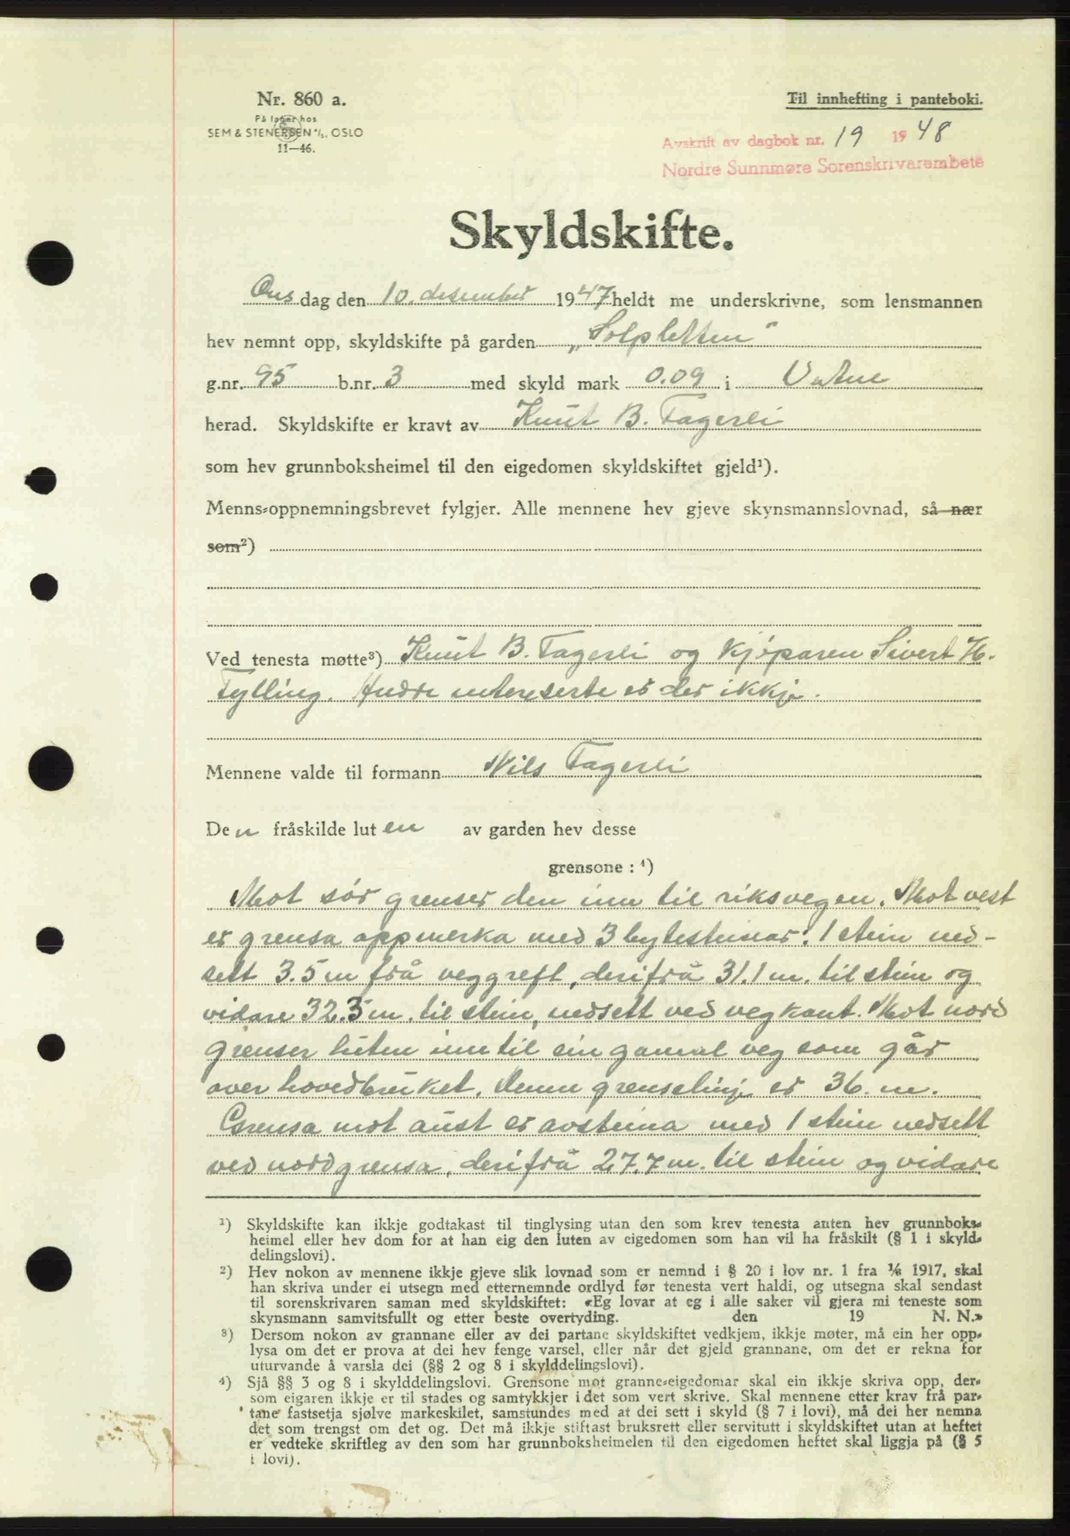 Nr. 860 a.
På lager hos
SEM & STENERSEN A/S. OSLO
11—46.
Til innhefting i panteboki.
Avskrift av dagbok nr. 19 1948
Nordre Sunnmøre Sorenskrivarembete
Skyldskifte.
Ons dag den 10. desember 1947 heldt me underskrivne, som lensmannen
hev nemnt opp, skyldskifte på garden „Solpletten"
g.nr. 95 b.nr. 3 med skyld mark 0.09 i Vatne
herad. Skyldskifte er kravt av Knut B. Fagerli
som hev grunnboksheimel til den eigedomen skyldskiftet gjeld¹).
Menns-oppnemningsbrevet fylgjer. Alle mennene hev gjeve skynsmannslovnad, så nær
som²)
Ved tenesta møtte³) Knut B. Fagerli og kjöparen Sivert H.
Fylling. Andre intereserte er der ikkje.
Mennene valde til formann Nils Fagerli
Den fråskilde luten av garden hev desse
grensone : ⁴)
Mot sör grenser den inn til riksvegen. Mot vest
er grensa oppmerka med 3 bytesteinar: 1 stein ned-
sett 3.5 m frå veggreft, derifrå 31.1 m. til stein og
vidare 32.3 m. til stein, nedsett ved vegkant. Mot nord
grenser luten inn til ein gamal veg som går
over hovedbruket. Denne grenselinje er 36. m.
Grensa mot aust er avsteina med 1 stein nedsett
ved nordgrensa, derifrå 27.7 m. til stein og vidare
¹) Skyldskifte kan ikkje godtakast til tinglysing utan den som krev tenesta anten hev grunnboks-
heimel eller hev dom for at han eig den luten av eigedomen som han vil ha fråskilt (§ 1 i skyld-
delingslovi).
²) Hev nokon av mennene ikkje gjeve slik lovnad som er nemnd i § 20 i lov nr. 1 fra 1/6 1917, skal
han skriva under ei utsegn med etternemnde ordlyd før tenesta vert haldi, og utsegna skal sendast
til sorenskrivaren saman med skyldskiftet: «Eg lovar at eg i alle saker vil gjera mi teneste som
skynsmann samvitsfullt og etter beste overtyding. den 19 N. N.»
³) Dersom nokon av grannane eller av dei partane skyldskiftet vedkjem, ikkje møter, må ein her opp-
lysa om det er prova at dei hev fenge varsel, eller når det gjeld grannane, om det er rekna for
uturvande å varsla dei (§§ 2 og 8 i skylddelingslovi).
⁴) Sjå §§ 3 og 8 i skylddelingslovi. Grensone mot granne-eigedomar skal ein ikkje skriva opp, der-
som eigaren ikkje er til stades og samtykkjer i det som vert skrive. Skal mennene etter krav frå par-
tane fastsetja sjølve markeskilet, samstundes med at dei sett i skyld (§ 7 i lovi), må dei her nemna
det som trengst om det og. Det må ikkje stiftast bruksrett eller servitutt i skyldskiftet utan at heftet
er vedteke skriftleg av den som har grunnboksheimelen til den eigedomen heftet skal liggja på (§ 5
i lovi).